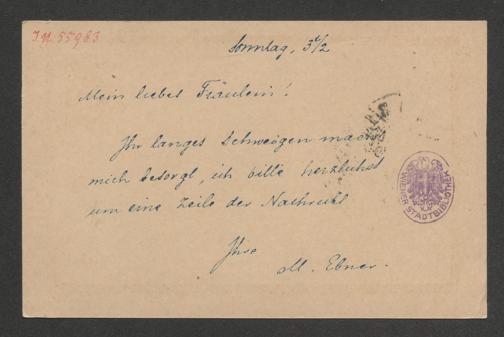 I.N. 55963
Sonntag, 3/2
Mein liebes Fräulein!
Ihr langes Schweigen macht
mich besorgt, ich bitte herzlichst
um eine Zeile der Nachricht
Ihre
M. Ebner.
WIENER STADTBIBLIOTHEK